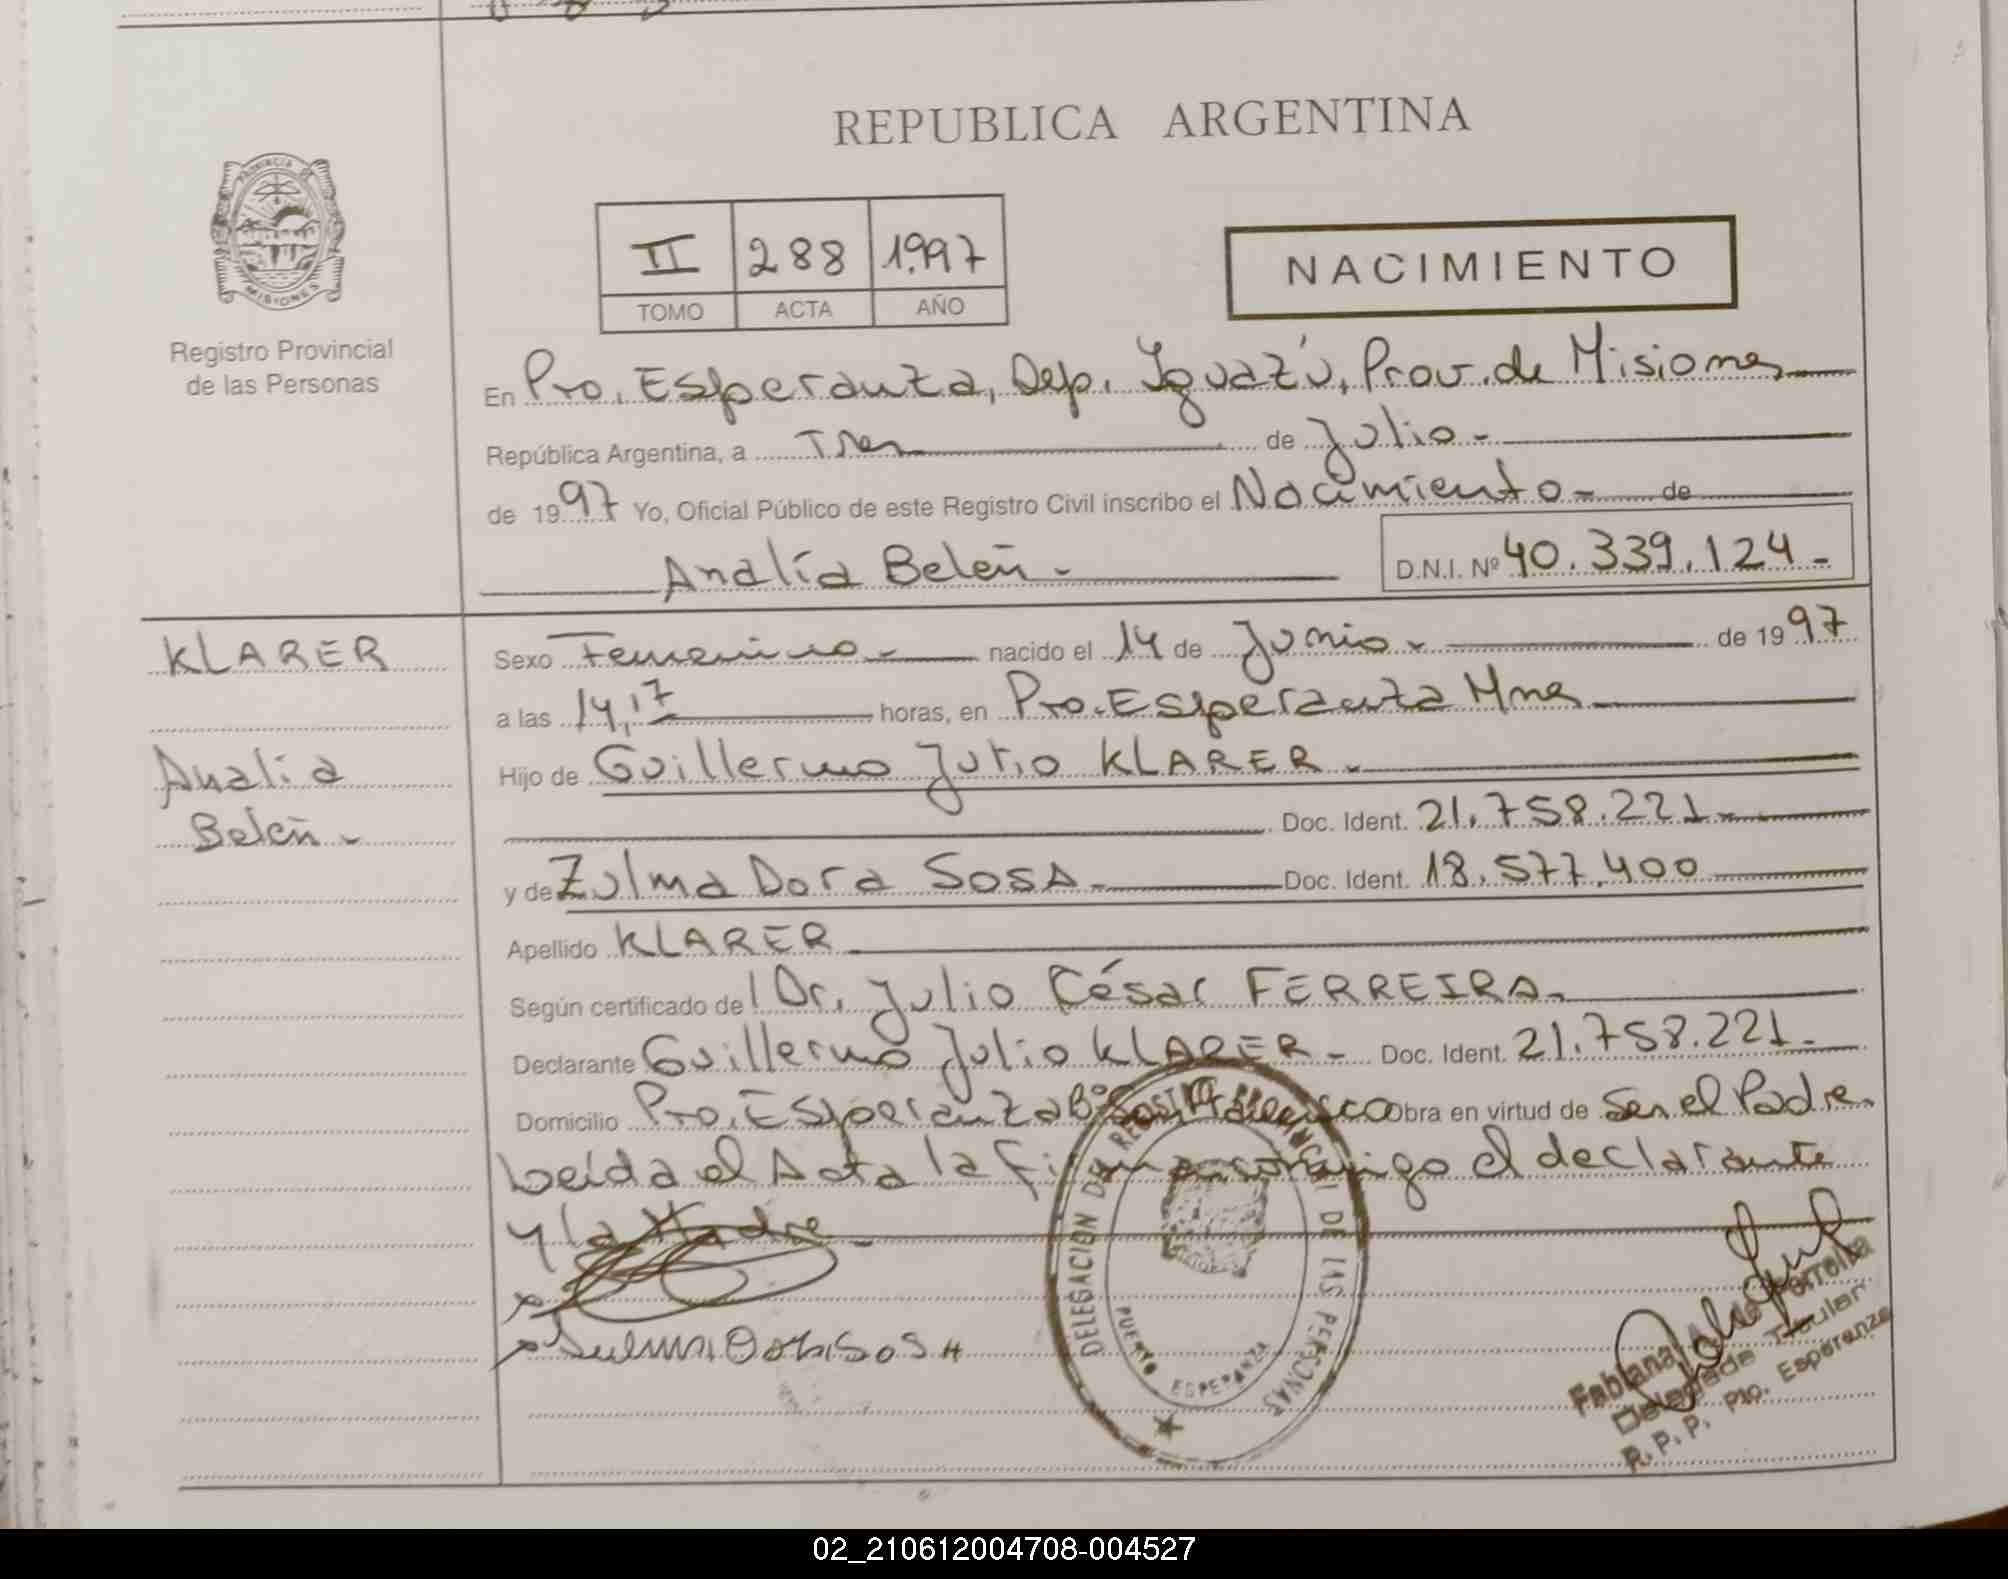 REPUBLICA ARGENTINA
PROVINCIA DE
MISIONES
Registro Provincial
de las Personas
II 288 1997
TOMO ACTA AÑO
NACIMIENTO
En Pto. Esperanza, Dep. Iguazú, Prov. de Misiones
República Argentina, a Tres de Julio.-
de 1997 Yo, Oficial Público de este Registro Civil inscribo el Nacimiento - de
Analía Belén - D.N.I. Nº 40.339.124-
KLARER
Analia
Belén -
Sexo Femenino - nacido el 14 de Junio - de 1997
a las 14,17 horas, en Pto. Esperanza Mnes
Hijo de Guillermo Julio KLARER -
Doc. Ident. 21.758.221-
y de Zulma Dora SOSA - Doc. Ident. 18.577.400
Apellido KLARER
Según certificado del Dr. Julio César FERREIRA-
Declarante Guillermo Julio KLARER - Doc. Ident. 21.758.221-
Domicilio Pto. Esperanza Bº San Obra en virtud de Ser el Padre.
Leída el Acta la Firma conmigo el declarante
y la Madre -
DELEGACION DEL REGISTRO PROVINCIAL DE LAS PERSONAS
PUERTO ESPERANZA
Fabiana
Delegada Titular
R. P. P. Pto. Esperanza
02_210612004708-004527